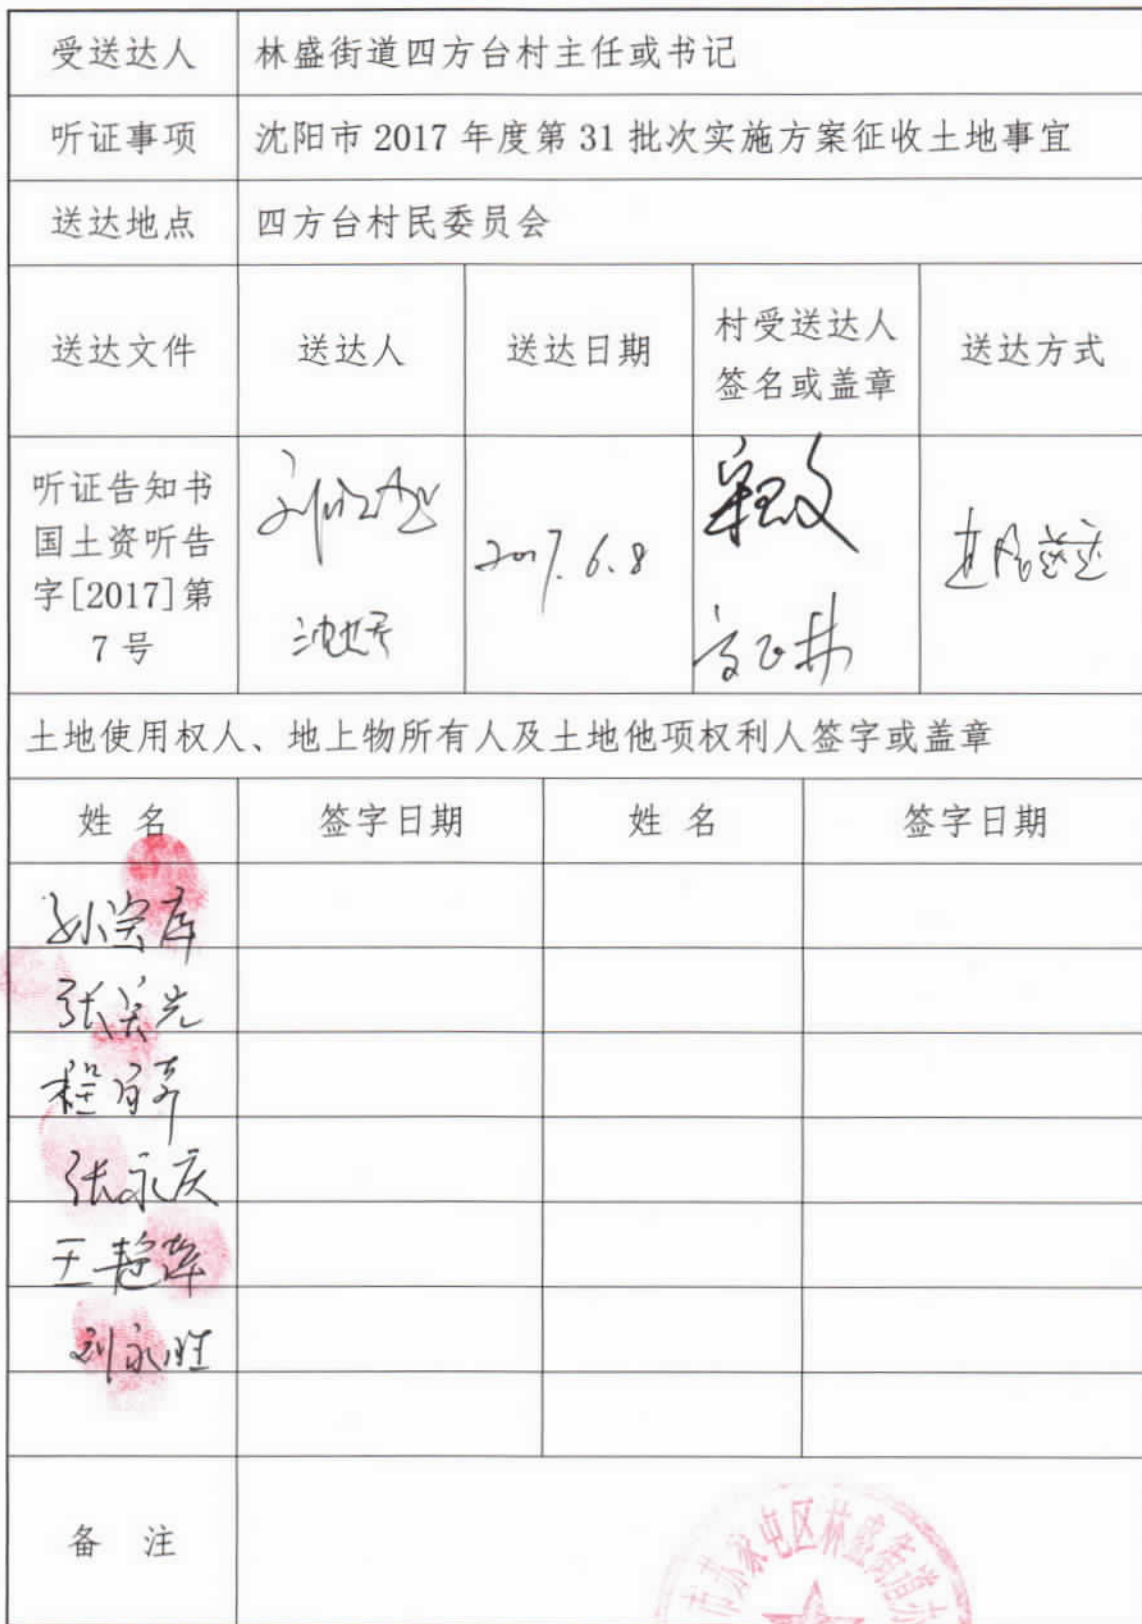 受送达人 林盛街道四方台村主任或书记
听证事项 沈阳市 2017 年度第 31 批次实施方案征收土地事宜
送达地点 四方台村民委员会
送达文件 送达人 送达日期 村受送达人 送达方式
签名或盖章
听证告知书
国土资听告
字[2017]第
7 号
2017.6.8
土地使用权人、地上物所有人及土地他项权利人签字或盖章
姓 名 签字日期 姓 名 签字日期
张永庆
刘永胜
备 注
市苏家屯区林盛街道办